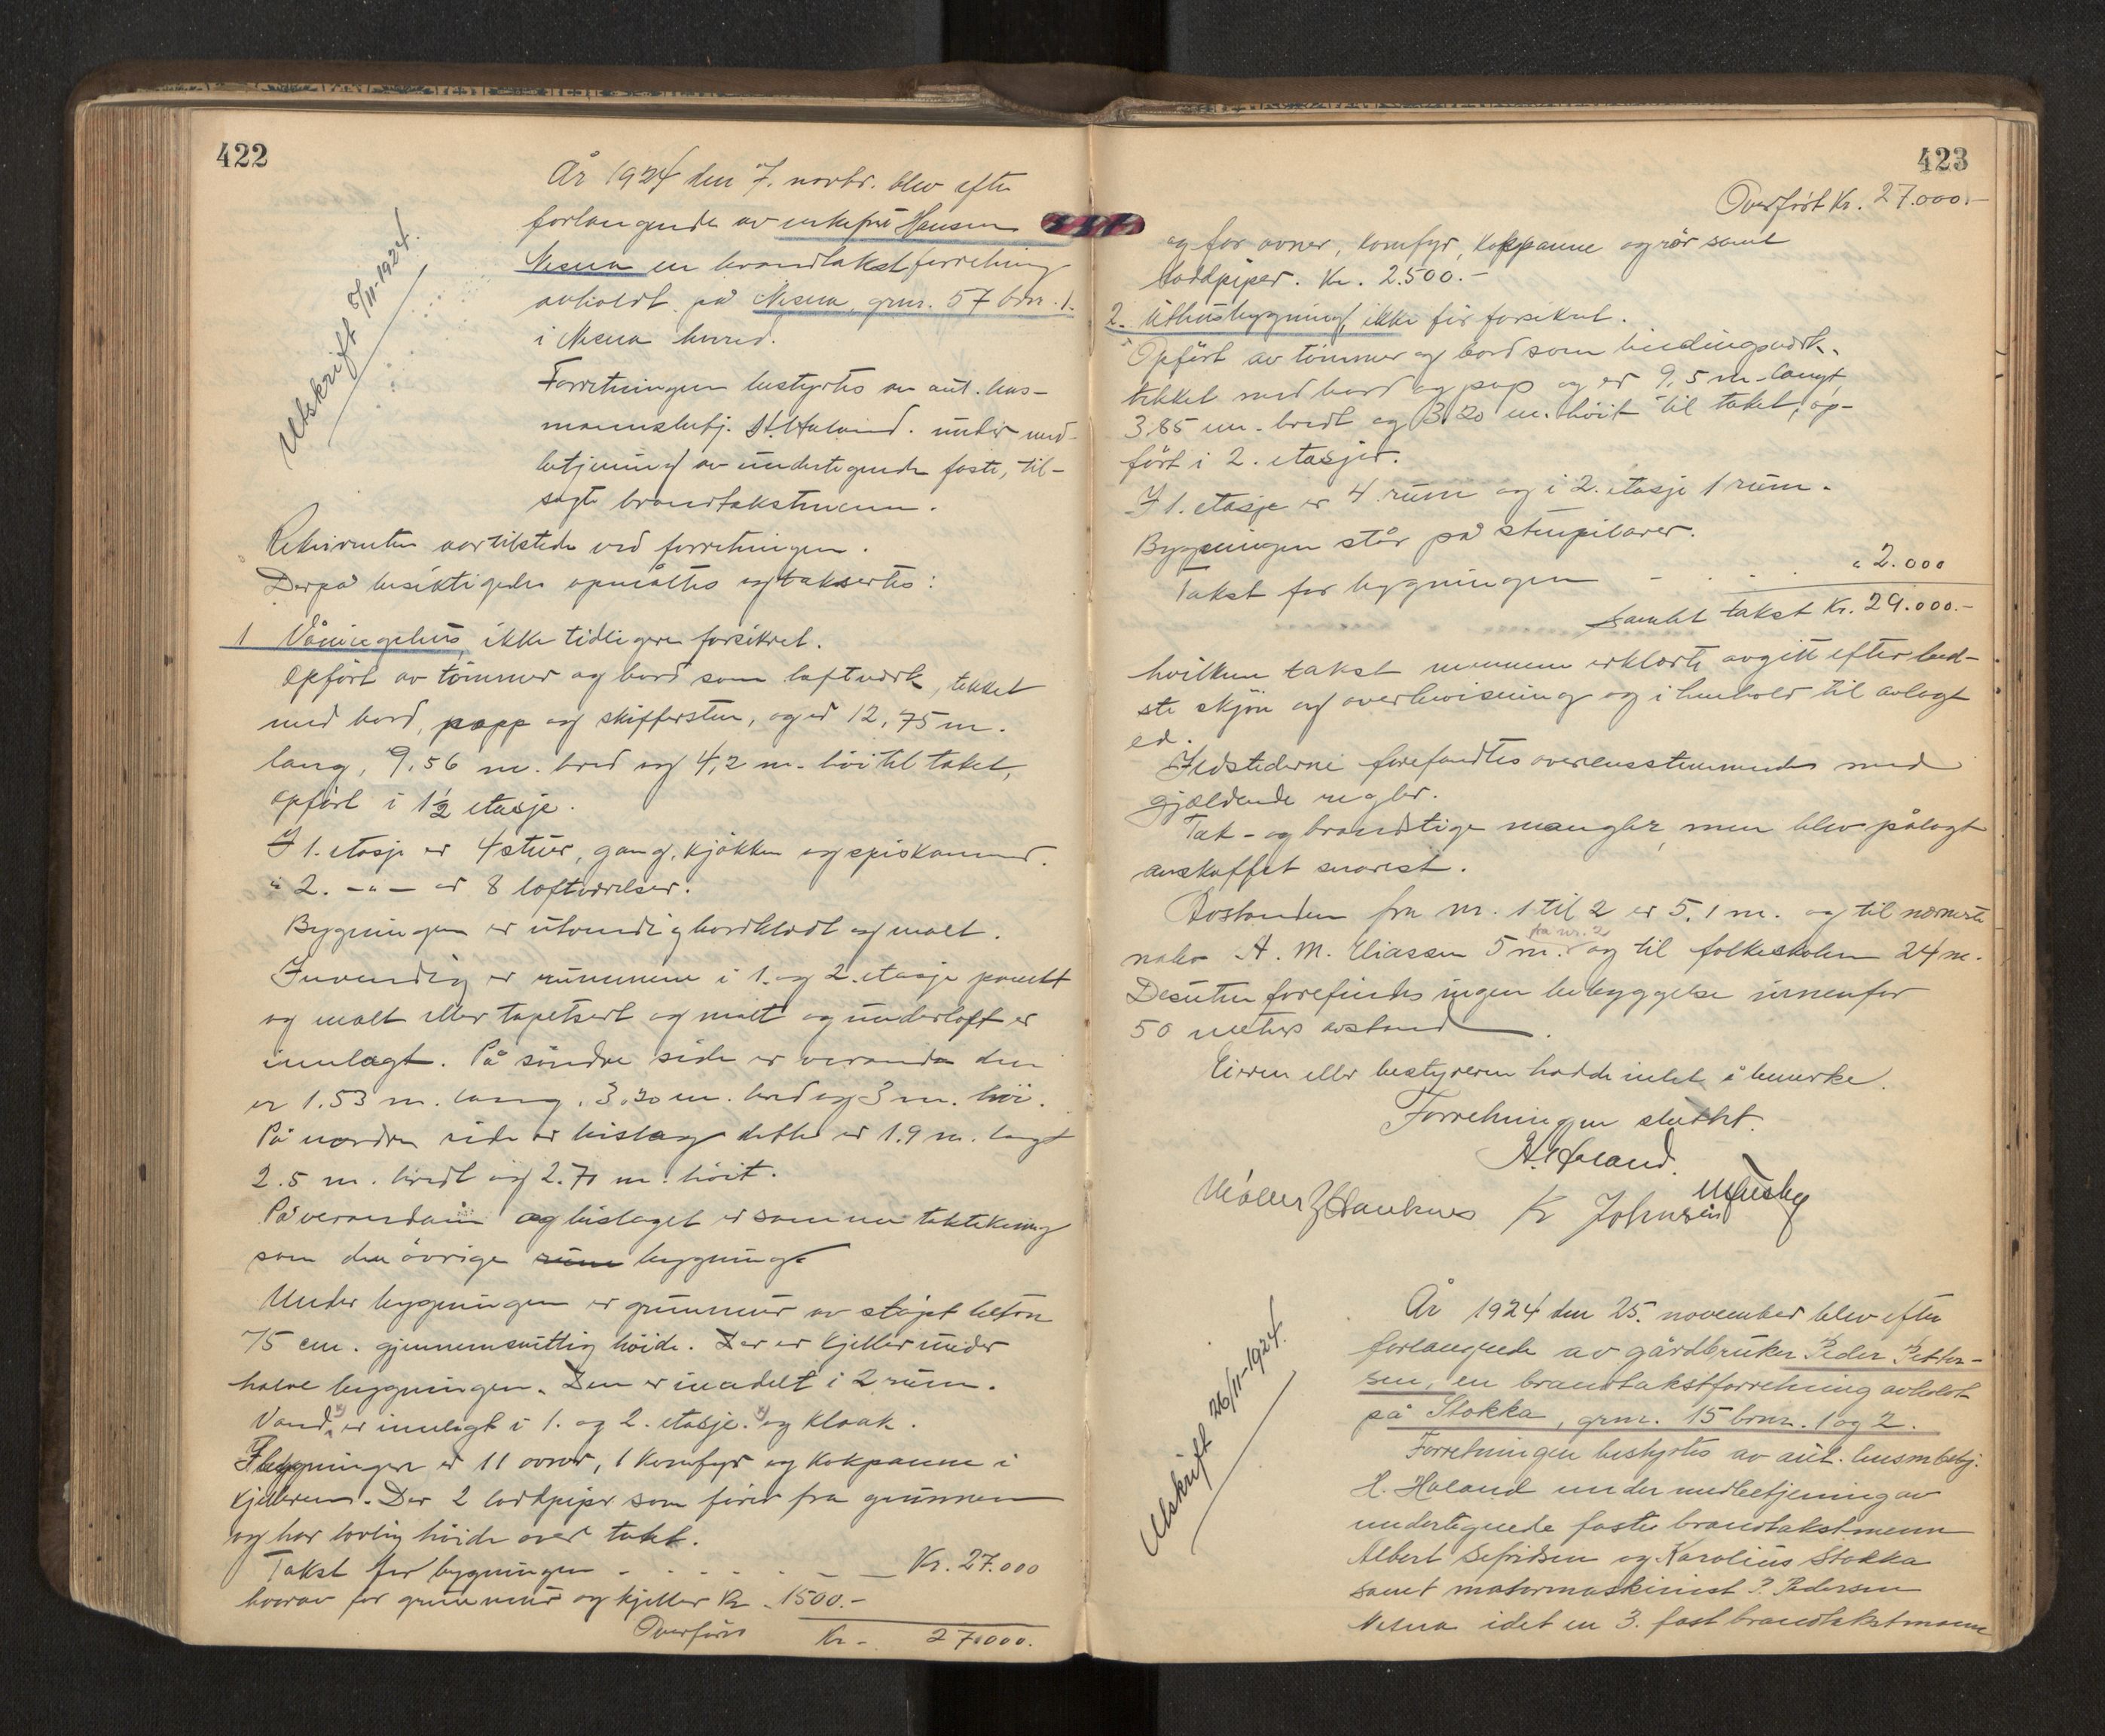 422
År 1924 den 7. novbr. blev efter
forlangende av enkefru Hansen
Nesna en brandtakstforretning
avholdt på Nesna, grnr. 57 brnr. 1.
i Nesna herred.
Utskrift 8/11-1924.
Forretningen bestyrtes av aut. lens-
mannsbetj. H. Haland. under med-
betjening av undertegnede faste, til-
sagte brandtakstmenn.
Rekvirenten var tilstede ved forretningen.
Derpå besiktigedes opmåltes og taksertes:
1 Våningshus, ikke tidligere forsikret.
Opført av tømmer og bord som laftverk, tekket
med bord, papp og skiffersten, og er 12,75 m.
lang, 9,56 m. bred og 4,2 m. høi til taket,
opført i 1½ etasje.
I 1. etasje er 4 stuer, gang, kjøkken og spiskammer.
" 2. -"- er 8 loftværelser.
Bygningen er utvendig bordklædt og malt.
Innvendig er rummene i 1. og 2. etasje panelt
og malt eller tapetsert og malt og underloft er
innlagt. På søndre side er veranda den
er 1.53 m. lang, 3,20 m. bred og 3 m. høi.
På nordre side er bislag dette er 1.9 m. langt
2.5 m. bredt og 2.70 m. høit.
På verandaen og bislaget er samme taktekning
som den øvrige rum bygning.
Under bygningen er grunnmur av støpt beton
75 cm. gjennemsnittlig høide. Der er kjeller under
halve bygningen. Den er inndelt i 2 rum.
Vand er innlagt i 1. og 2. etasje. og kloak.
I bygningen er 11 ovner, 1 komfyr og kokpanne i
kjelleren. Der 2 loddpiper som fører fra grunnen
og har lovlig høide over taket.
Takst for bygningen - - - - - Kr. 27.000
hvorav for grunnmur og kjeller Kr. 1500.-
Overføres Kr. 27.000.
423
Overført Kr. 27.000.-
og for ovner, komfyr, kokpanne og rør samt
loddpiper. Kr. 2.500.-
2. Uthusbygning, ikke før forsikret.
Opført av tømmer og bord som bindingsverk,
tekket med bord og pap og er 9,5 m. langt,
3,85 m. bredt og 3.20 m. høit til taket, op-
ført i 2. etasjer.
I 1. etasje er 4 rum og i 2. etasje 1 rum.
Bygningen står på stenpilarer.
Takst for bygningen - - - " 2.000
Samlet takst Kr. 29.000.-
hvilken takst mennene erklærte avgitt efter bed-
ste skjøn og overbevisning og i henhold til avlagt
ed.
Ildstederne forefandtes overensstemmende med
gjældende regler.
Tak- og brandstige mangler, men blev pålagt
anskaffet snarest.
Avstanden fra nr. 1 til 2 er 5,1 m. og til nærmeste
fra nr. 2
nabo A. M. Eliassen 5 m. og til folkeskolen 24 m.
Desuten forefindes ingen bebyggelse innenfor
50 meters avstand.
Eieren eller bestyreren hadde intet å bemerke.
Forretningen sluttet.
H. Haland.
Kr Johnsen
År 1924 den 25. november blev efter
forlangende av gårdbruker Peder Petter-
sen, en brandtakstforretning avholdt
på Stokka, grnr. 15 brnr. 1 og 2.
Utskrift 26/11-1924.
Forretningen bestyrtes av aut. lensm betj.
H. Haland under medbetjening av
undertegnede faste brandtakstmenn
Albert Sefridsen og Karolius Stokka
samt motormaskinist P. Pedersen
Nesna idet en 3. fast brandtakstmann